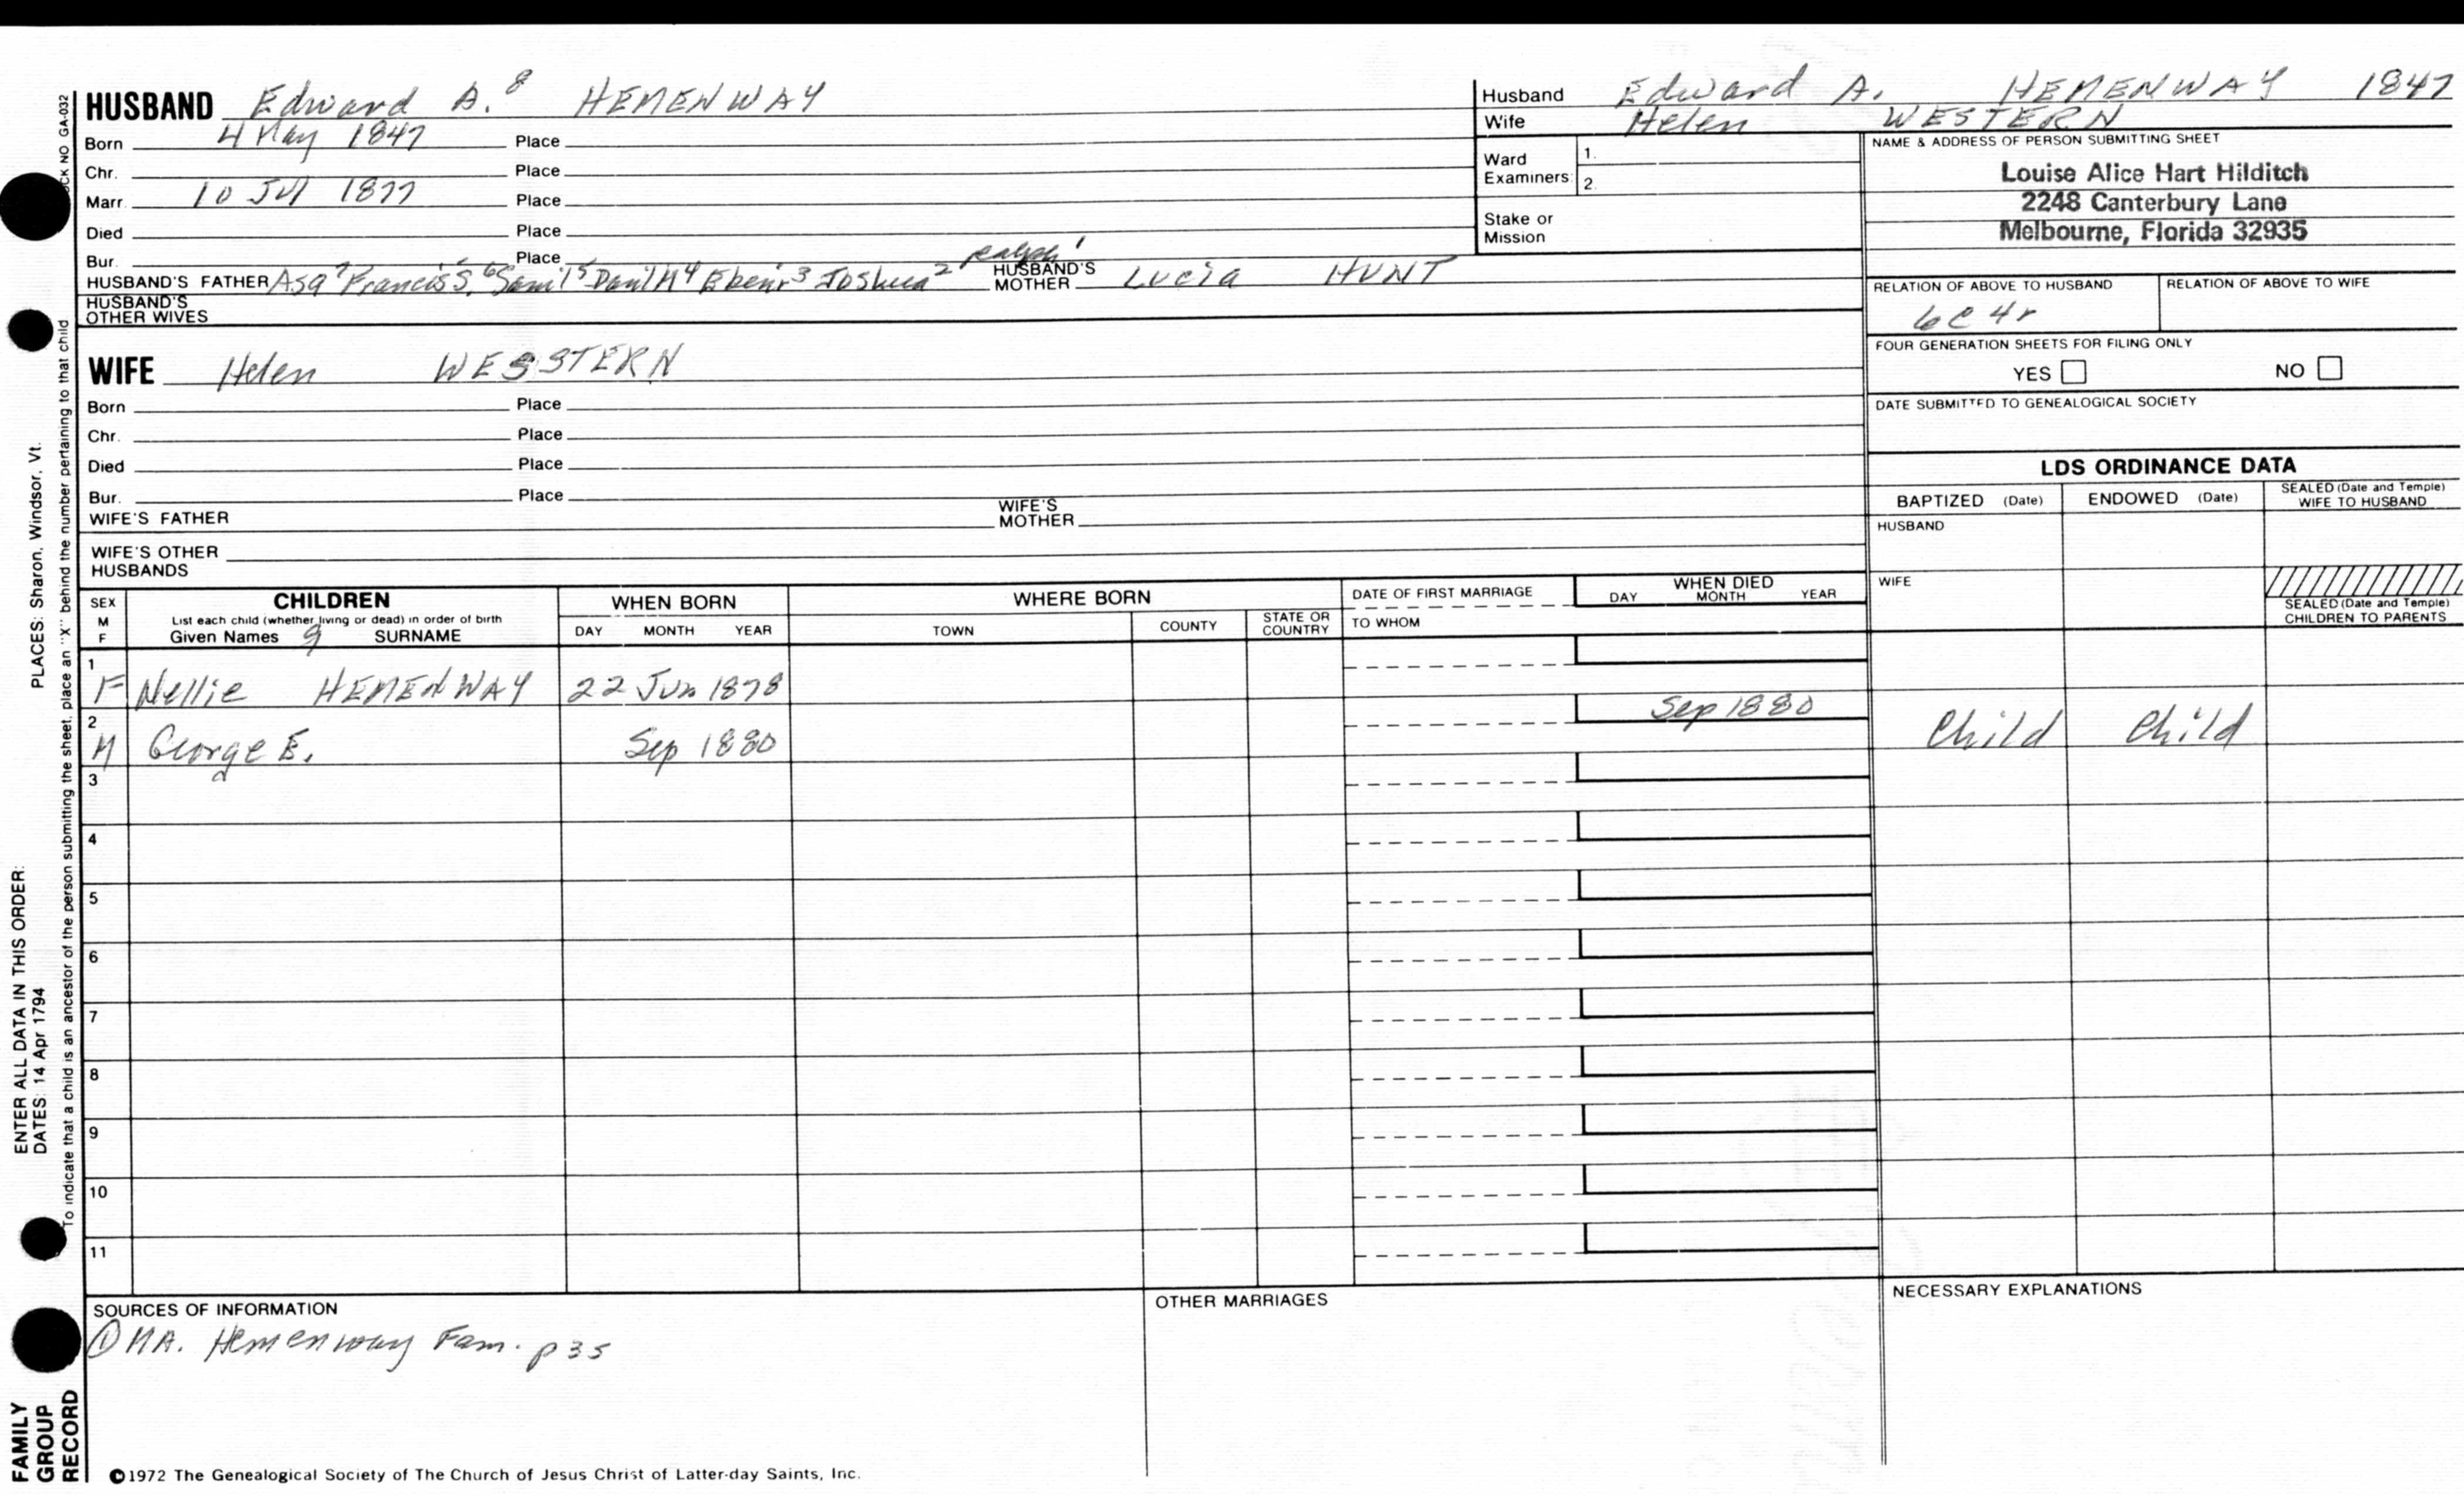 HUSBAND Edward A.⁸ HEMENWAY
Born 4 May 1847 Place
Chr. Place
Marr. 10 Jul 1877 Place
Died Place
Bur. Place
HUSBAND'S FATHER Asa⁷ Francis S.⁶ Saml⁵ Danl H⁴ Ebenr³ Joshua² Ralph¹ HUSBAND'S MOTHER Lucia HUNT
HUSBAND'S OTHER WIVES
Husband Edward A. HEMENWAY 1847
Wife Helen WESTERN
Ward Examiners: 1.
2.
Stake or Mission
NAME & ADDRESS OF PERSON SUBMITTING SHEET
Louise Alice Hart Hilditch
2248 Canterbury Lane
Melbourne, Florida 32935
RELATION OF ABOVE TO HUSBAND RELATION OF ABOVE TO WIFE
6C 4r
FOUR GENERATION SHEETS FOR FILING ONLY
YES NO
DATE SUBMITTED TO GENEALOGICAL SOCIETY
WIFE Helen WESSTERN
Born Place
Chr. Place
Died Place
Bur. Place
WIFE'S FATHER WIFE'S MOTHER
WIFE'S OTHER HUSBANDS
LDS ORDINANCE DATA
BAPTIZED (Date) ENDOWED (Date) SEALED (Date and Temple) WIFE TO HUSBAND
HUSBAND
WIFE
SEALED (Date and Temple) CHILDREN TO PARENTS
SEX M F CHILDREN WHEN BORN WHERE BORN DATE OF FIRST MARRIAGE WHEN DIED
List each child (whether living or dead) in order of birth
Given Names 9 SURNAME DAY MONTH YEAR TOWN COUNTY STATE OR COUNTRY TO WHOM DAY MONTH YEAR
1 F Nellie HEMENWAY 22 Jun 1878
2 M George E. Sep 1880 Sep 1880 Child Child
3
4
5
6
7
8
9
10
11
SOURCES OF INFORMATION
① MA. Hemenway Fam. p 35
OTHER MARRIAGES
NECESSARY EXPLANATIONS
©1972 The Genealogical Society of The Church of Jesus Christ of Latter-day Saints, Inc.
FAMILY
GROUP
RECORD
ENTER ALL DATA IN THIS ORDER:
DATES: 14 Apr 1794
PLACES: Sharon, Windsor, Vt.
To indicate that a child is an ancestor of the person submitting the sheet, place an "X" behind the number pertaining to that child
NO GA-032